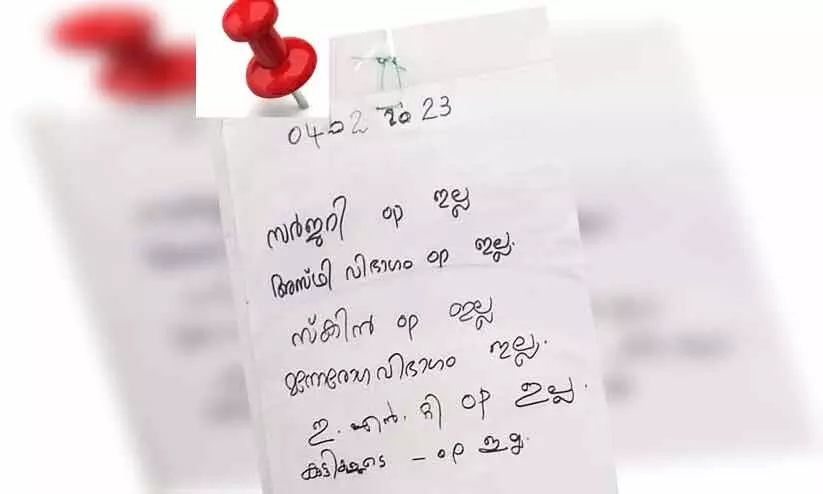 04-02-2023
സർജറി op ഇല്ല
അസ്ഥി വിഭാഗം op ഇല്ല.
സ്കിൻ op ഇല്ല
മനോരോഗവിഭാഗം ഇല്ല.
ഇ. എൻ. റ്റി op ഇല്ല.
കുട്ടികളുടെ - op ഇല്ല.